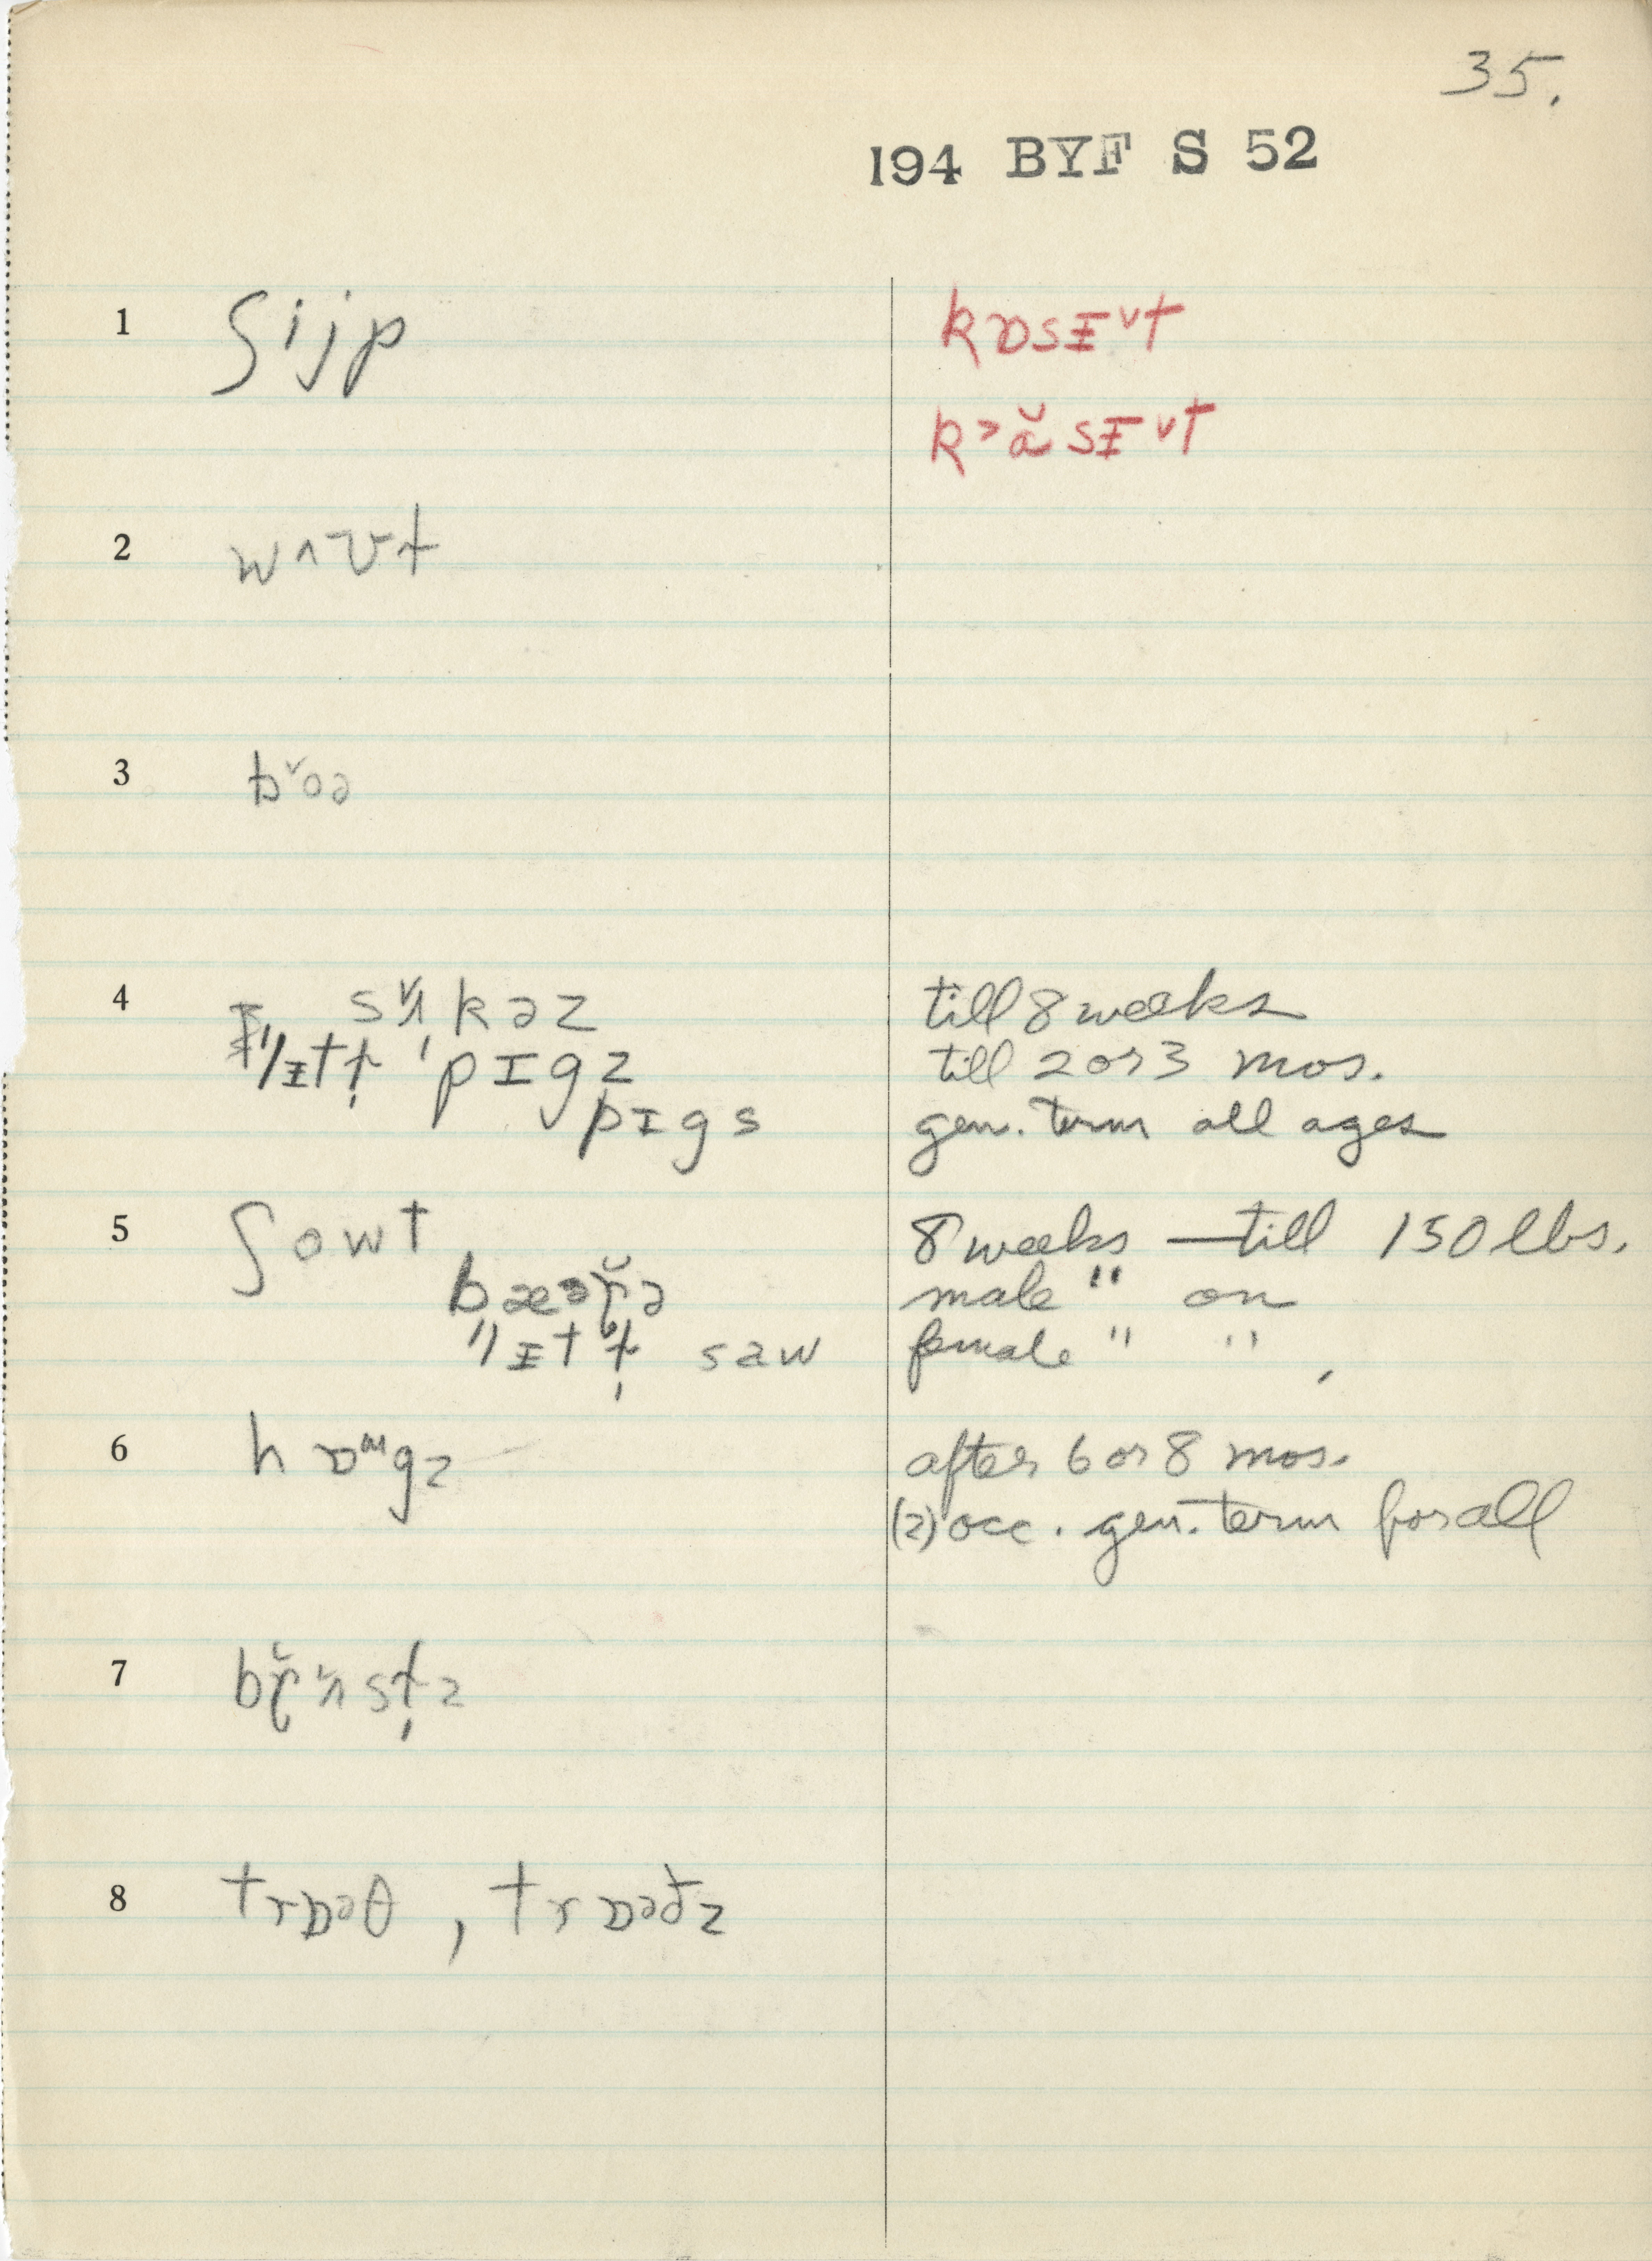 35.
194 BYF S 52
1 ʃijp kɒsɪ̵ᵛt
k˃ɑ̆sɪ̵ᵛt
2 wʌʊt
3 b˅oə
4 kəz till 8 weeks
pɪgz till 2 or 3 mos.
pɪgs gen. term all ages
5 ʃowt 8 weeks — till 150 lbs.
male " on
saw female " " ,
6 after 6 or 8 mos.
(2) occ. gen. term for all
7
8 trɒəθ , trɒəðz